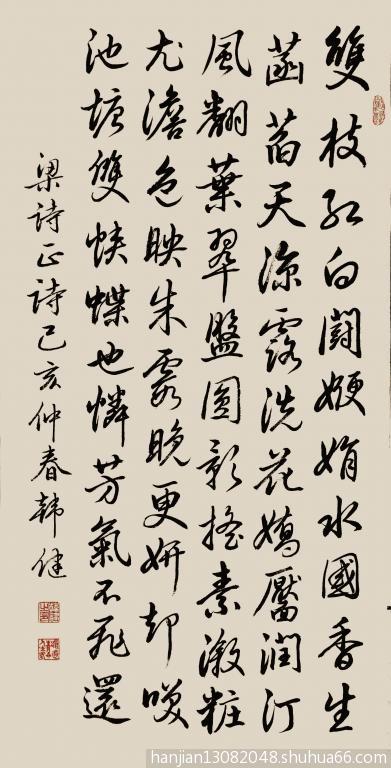 雙枝紅白鬪㛹娟水國香生
菡萏天涼露洗花嬌靨潤汀
風翻葉翠盤圓影搖素漵粧
尤澹色映朱霞晚更妍却嘆
池塘雙蛺蝶也憐芳氣不飛還
梁詩正詩己亥仲春韩健
hanjian13082048.shuhua66.com